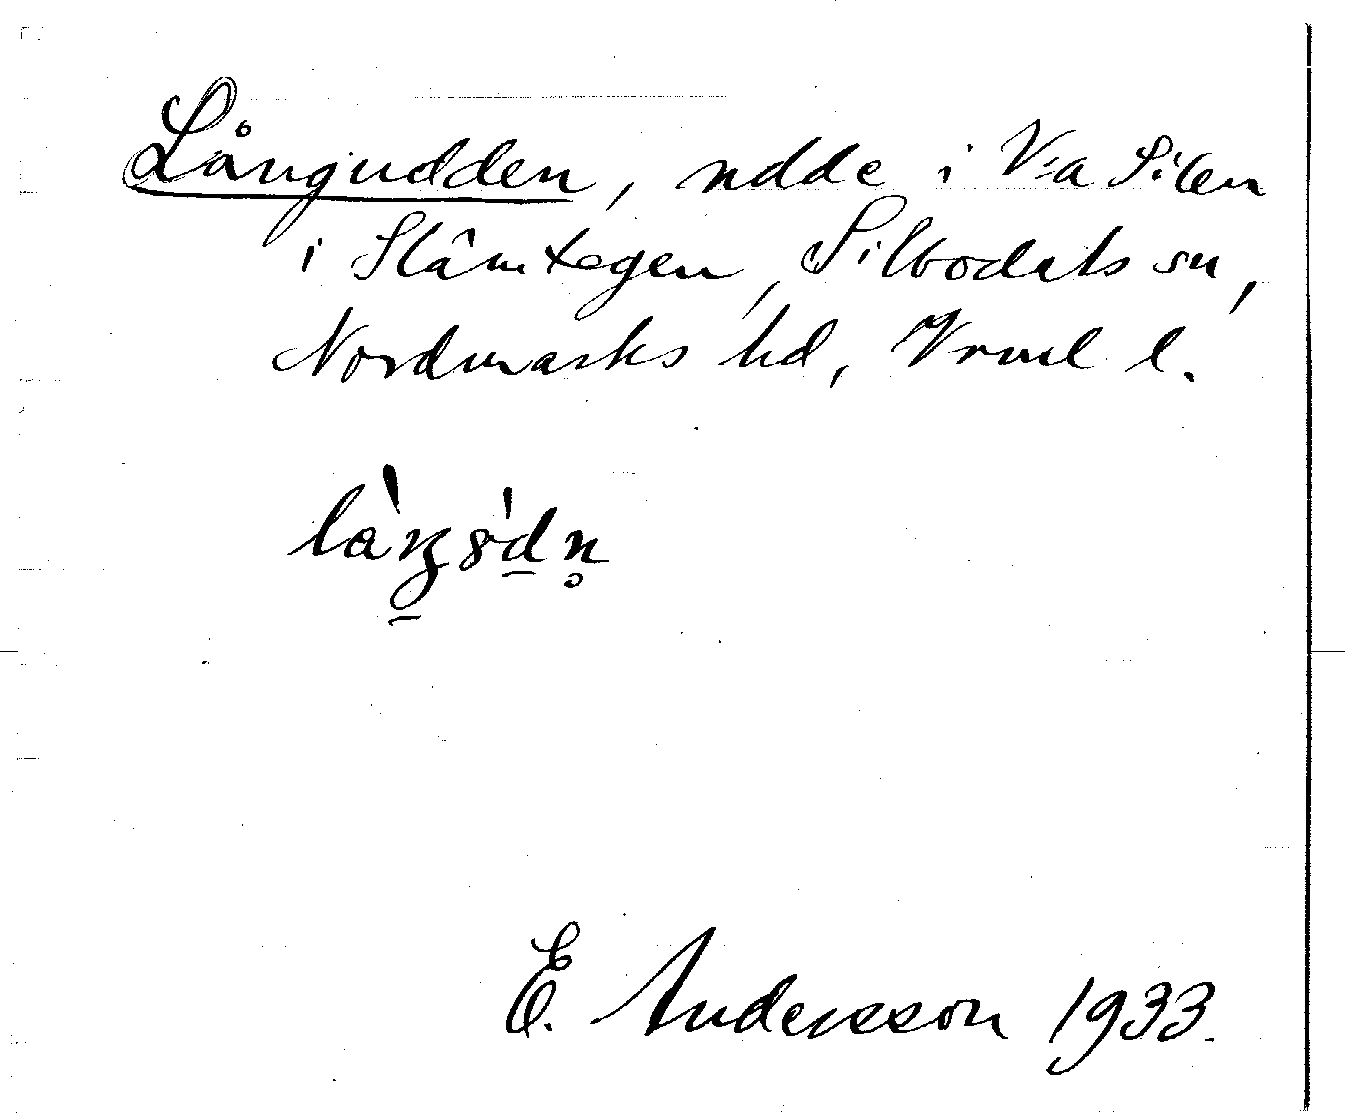 Långudden, udde i V:a Silen
i Slämtegen, Silbodals sn,
Nordmarks hd, Vrml l.
E. Andersson 1933.